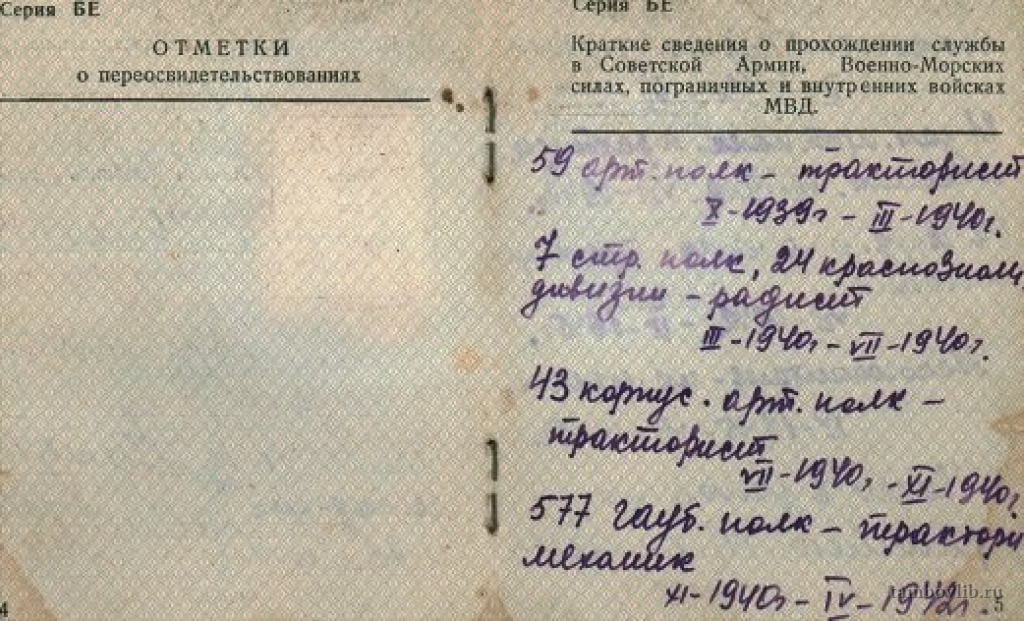 Серия БЕ
ОТМЕТКИ
о переосвидетельствованиях
4
Серия БЕ
Краткие сведения о прохождении службы
в Советской Армии, Военно-Морских
силах, пограничных и внутренних войсках
МВД.
59 арт. полк – тракторист
X-1939г – III-1940г.
7 стр. полк, 24 краснознам
дивизии – радист
III-1940г – VII-1940г.
43 корпус. арт. полк –
тракторист
VII-1940г - XI-1940г.
577 гауб. полк – тректори
механик
XI-1940г – IV-1942г.
tambovlib.ru
5